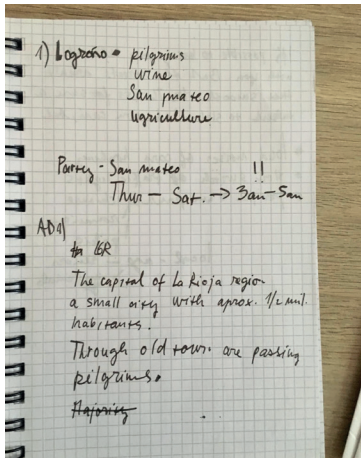 1) Logroño - pilgrims
wine
San mateo
agriculture
Party - San mateo !!
Thur - Sat. -> 3am - 5am
AD1)
The capital of La Rioja region
a small city with aprox. 1/2 mil.
habitants.
Through old town are passing
pilgrims.
Majority